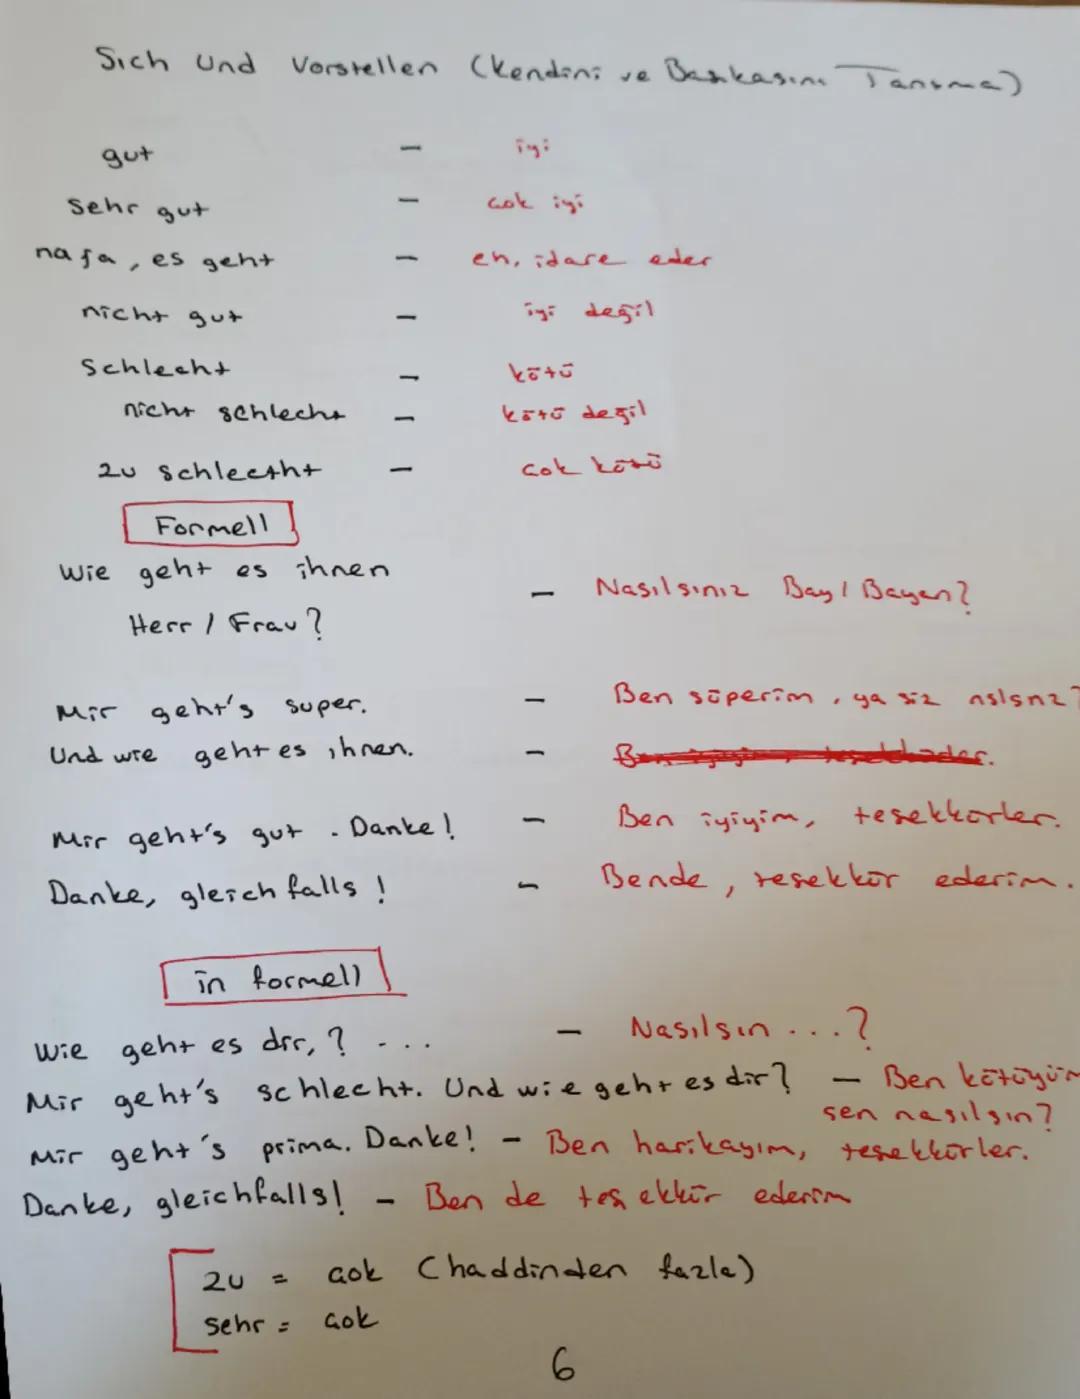 Sich und Vorstellen (Kendini ve Başkasını Tanıtma)
gut - iyi
Sehr gut - çok iyi
na ja, es geht - eh, idare eder
nicht gut - iyi değil
Schlecht - kötü
nicht schlecht - kötü değil
zu schlectht - çok kötü
Formell
Wie geht es ihnen
Herr / Frau? - Nasılsınız Bay / Bayan?
Mir geht's super. - Ben süperim, ya siz nslsnz?
Und wie geht es ihnen. -
Mir geht's gut. Danke! - Ben iyiyim, teşekkürler.
Danke, gleichfalls! - Bende, teşekkür ederim.
in formell
Wie geht es dir, ? ... - Nasılsın ...?
Mir geht's schlecht. Und wie geht es dir? - Ben kötüyüm
sen nasılsın?
Mir geht's prima. Danke! - Ben harikayım, teşekkürler.
Danke, gleichfalls! - Ben de teşekkür ederim
zu = çok (haddinden fazla)
sehr = çok
6